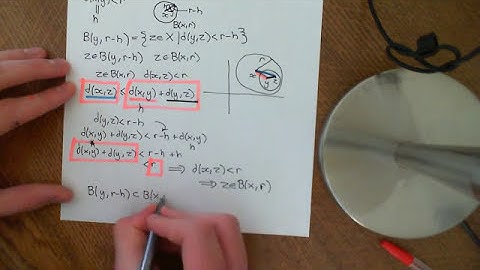 h
r-h
B(x,r)
B(y, r-h) = {z∈X | d(y,z) < r-h}
z∈B(y, r-h) z∈B(x,r)
z∈B(x,r) d(x,z) < r
d(x,z) ≤ d(x,y) + d(y,z)
h
r
x
y
z
d(y,z) < r-h
d(x,y) + d(y,z) < r-h + d(x,y)
h
d(x,y) + d(y,z) < r-h + h
< r ⟹ d(x,z) < r
⟹ z∈B(x,r)
B(y, r-h) ⊂ B(x,